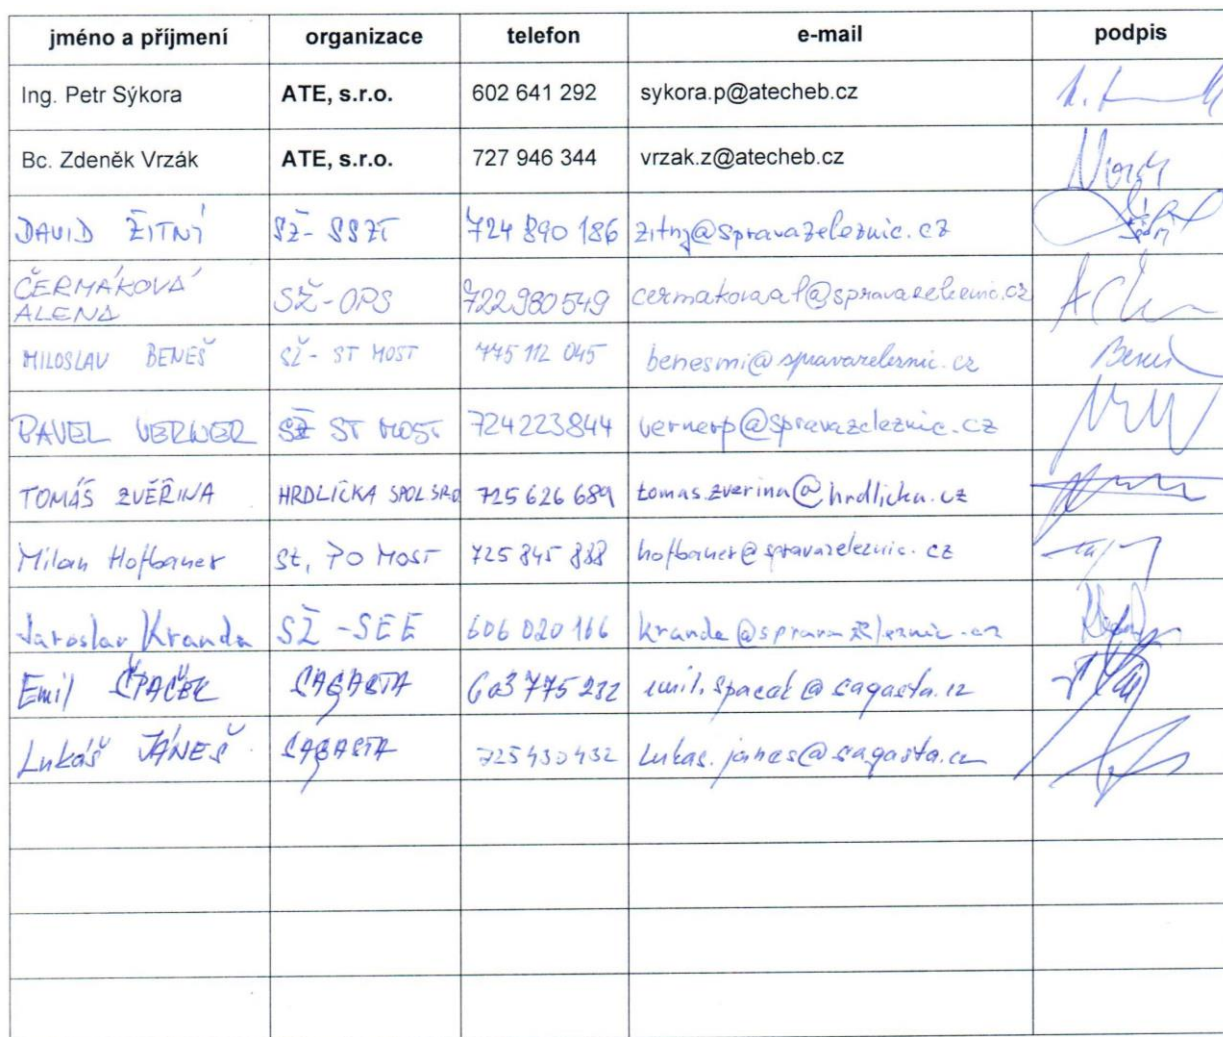 jméno a příjmení organizace telefon e-mail podpis
Ing. Petr Sýkora ATE, s.r.o. 602 641 292 sykora.p@atecheb.cz
Bc. Zdeněk Vrzák ATE, s.r.o. 727 946 344 vrzak.z@atecheb.cz
DAVID ŽITNÝ SŽ- SSZT 724 890 186 zitny@spravazeleznic.cz
ČERMÁKOVÁ
ALENA SŽ-OPS 722 980 549 cermakovaal@spravazeleznic.cz
MILOSLAV BENEŠ SŽ- ST MOST 775 112 045 benesmi@spravazeleznic.cz Beneš
PAVEL VERNER SŽ ST MOST 724223844 vernerp@spravazeleznic.cz
TOMÁŠ ZVĚŘINA HRDLIČKA SPOL.SR.O 725 626 689 tomas.zverina@hrdlicka.cz
Milan Hofbauer PO MOST 725 845 888 hofbauer@spravazeleznic.cz
Jaroslav Kranda SŽ -SEE 606 020 166 kranda@spravazeleznic.cz
Emil ŠPAČEK SAGASTA 603 775 232 emil.spacek@sagasta.cz
Lukáš JÁNEŠ SAGASTA 725430432 lukas.janes@sagasta.cz